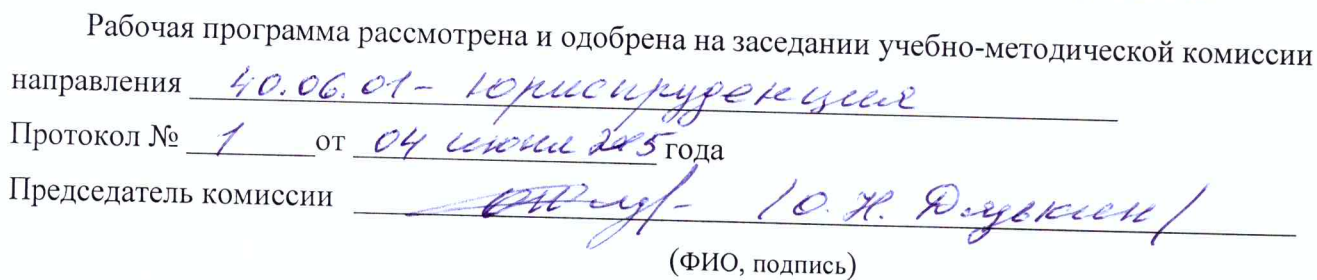 Рабочая программа рассмотрена и одобрена на заседании учебно-методической комиссии
направления 40.06.01 - юриспруденция
Протокол № 1 от 04 июня 2015 года
Председатель комиссии /О.Н. Дядькин/
(ФИО, подпись)